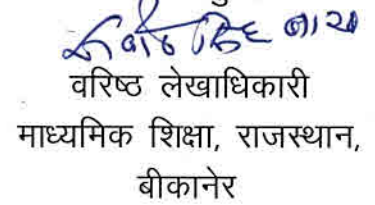 वरिष्ठ लेखाधिकारी
माध्यमिक शिक्षा, राजस्थान,
बीकानेर